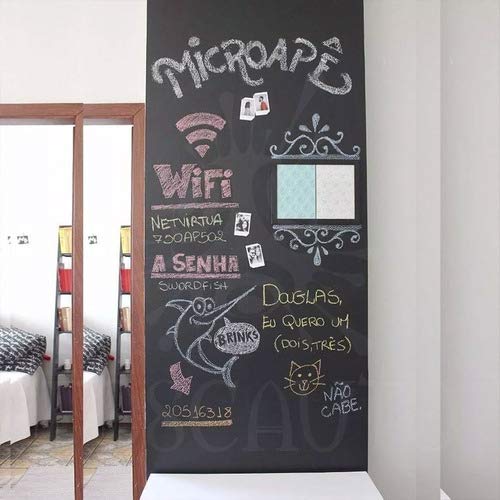 MICROAPÊ
WiFi
NETVIRTUA
750AP502
A SENHA
SWORDFISH
BRINKS
20516318
DOUGLAS,
EU QUERO UM
(DOIS, TRÊS)
NÃO
CABE.